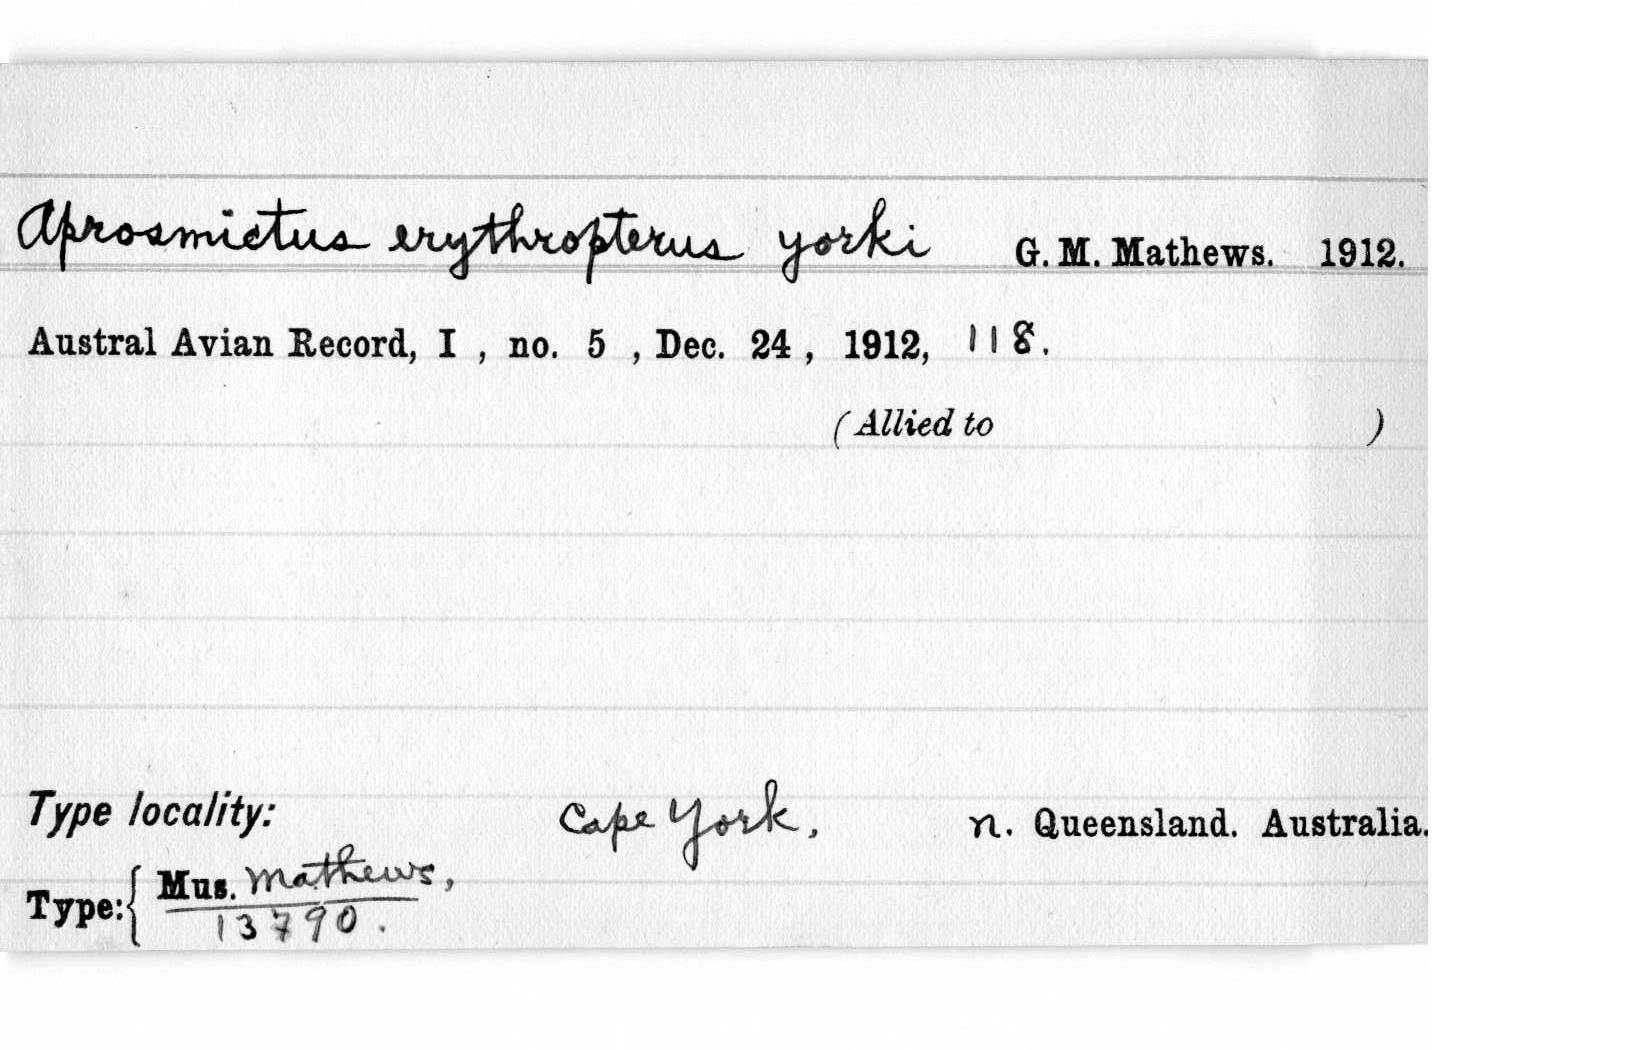 Aprosmictus erythropterus yorki G. M. Mathews. 1912.
Austral Avian Record, I , no. 5 , Dec. 24 , 1912, 118.
(Allied to )
Type locality: Cape York, n. Queensland. Australia.
Type:{ Mus. Mathews,
13790.